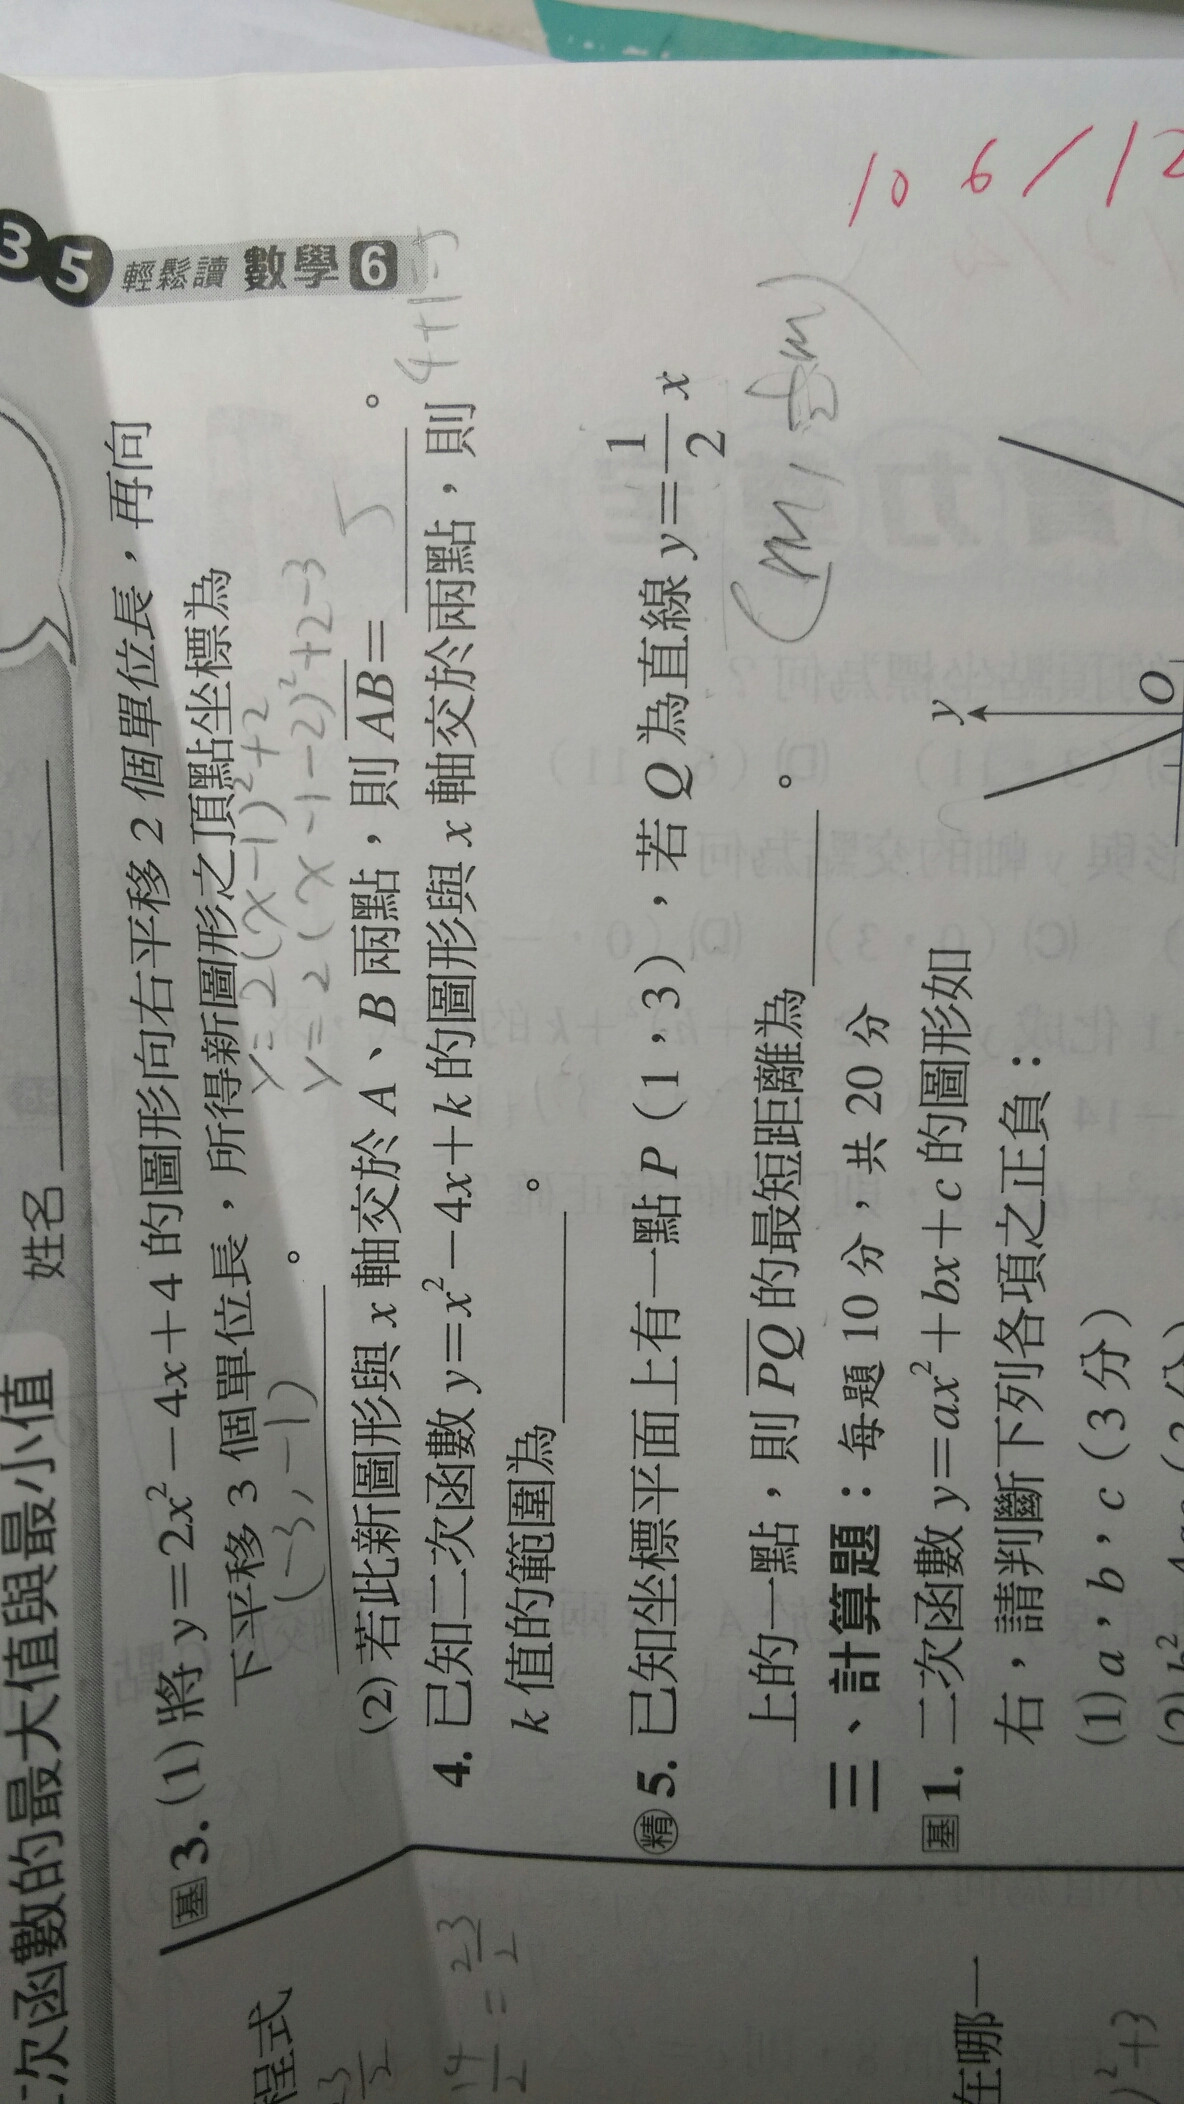 35 輕鬆讀 數學 6
次函數的最大值與最小值 姓名
基 3. (1) 將 y=2x²-4x+4 的圖形向右平移 2 個單位長，再向
下平移 3 個單位長，所得新圖形之頂點坐標為
y=2(x-1)²+2
(-3,-1)。
y=2(x-1-2)²+2-3
(2) 若此新圖形與 x 軸交於 A、B 兩點，則 AB= 5 。
4+1=5
4. 已知二次函數 y=x²-4x+k 的圖形與 x 軸交於兩點，則
k 值的範圍為 。
精 5. 已知坐標平面上有一點 P（1，3），若 Q 為直線 y=1/2 x
(m, 1/2m)
上的一點，則 PQ 的最短距離為 。
三、計算題：每題 10 分，共 20 分
基 1. 二次函數 y=ax²+bx+c 的圖形如
右，請判斷下列各項之正負：
(1) a，b，c（3 分）
y
O
106/12
程式
在哪一
)²+3